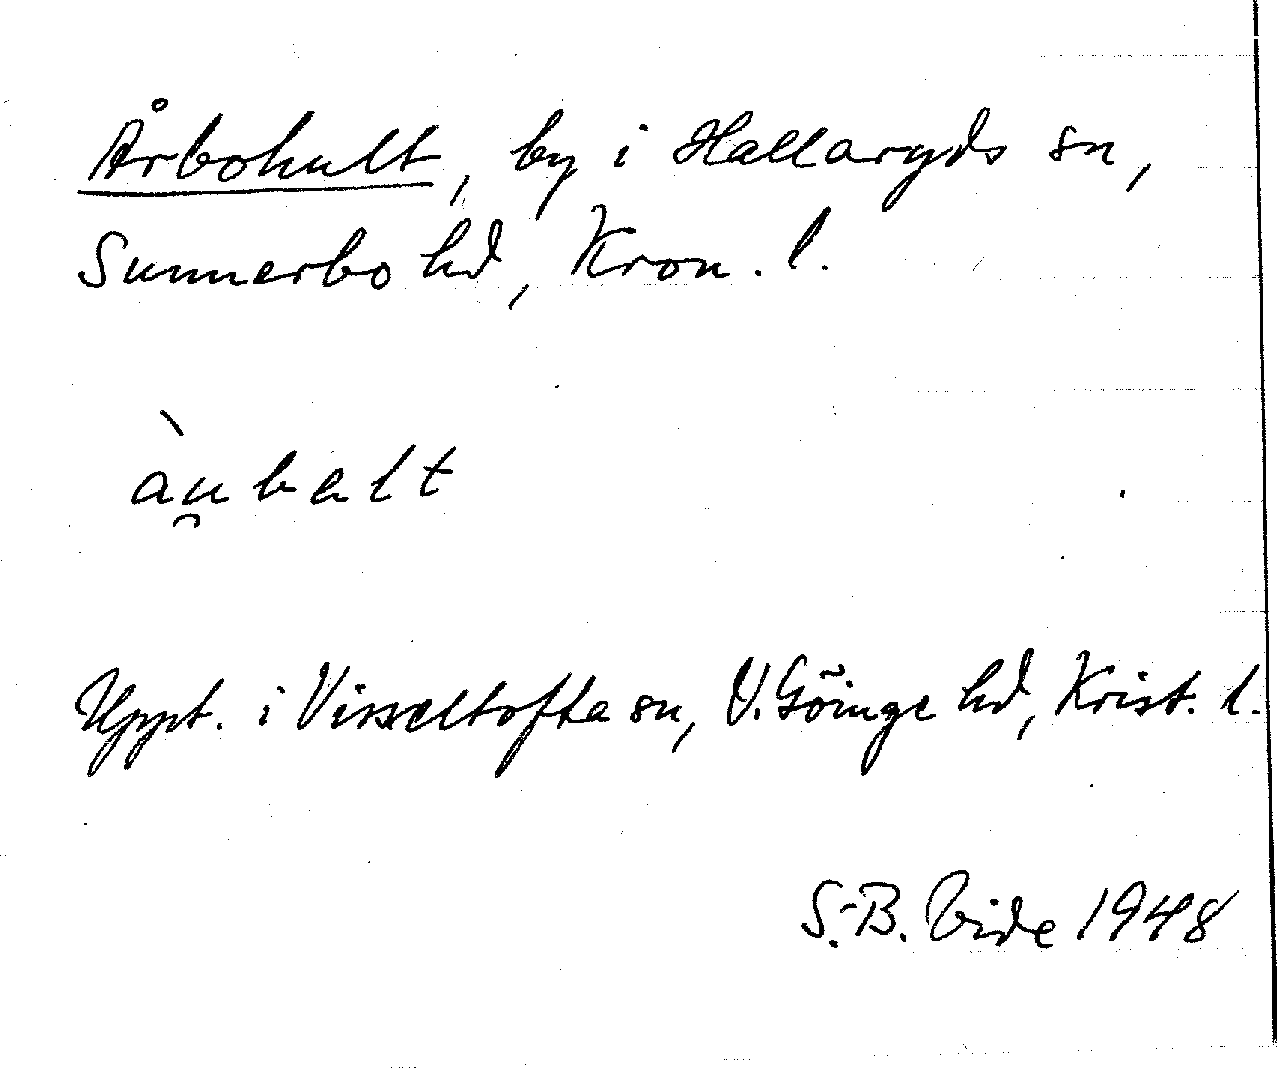 Årbohult, by i Hallaryds sn,
Sunnerbo hd, Kron. l.
àu̯balt
Uppt. i Visseltofta sn, V. Göinge hd, Krist. l.
S.-B. Vide 1948